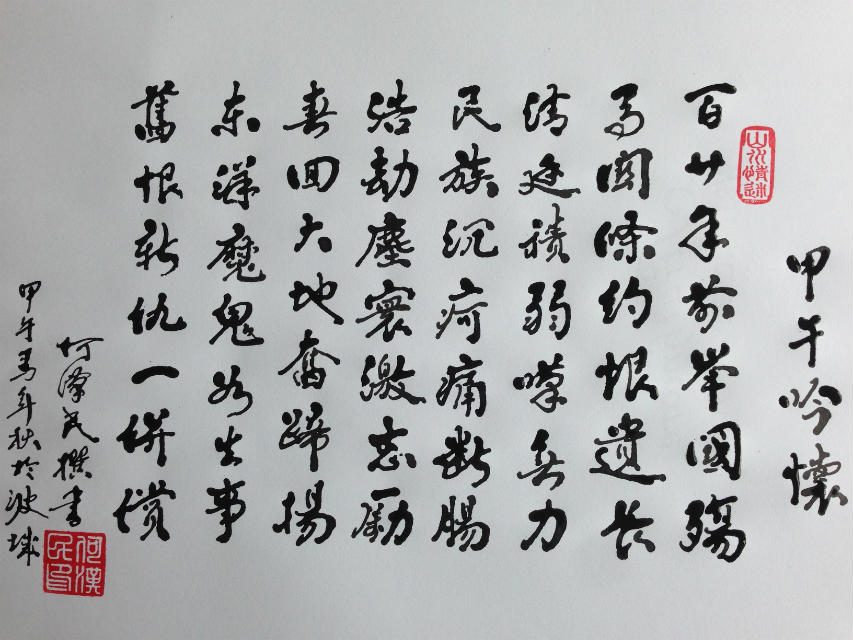 山水情迷
甲午吟懷
百廿年前举國殤
馬関條約恨遺長
清廷積弱嘆無力
民族沉疴痛断腸
浩劫塵寰激志勵
春回大地奮蹄揚
东洋魔鬼如生事
舊恨新仇一併償
何漢民撰書
甲午馬年秋於波城
何漢民印